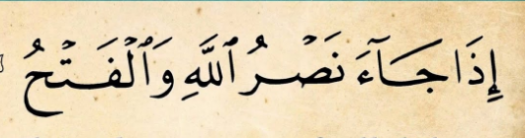 إِذَا جَآءَ نَصْرُ ٱللَّهِ وَٱلْفَتْحُ